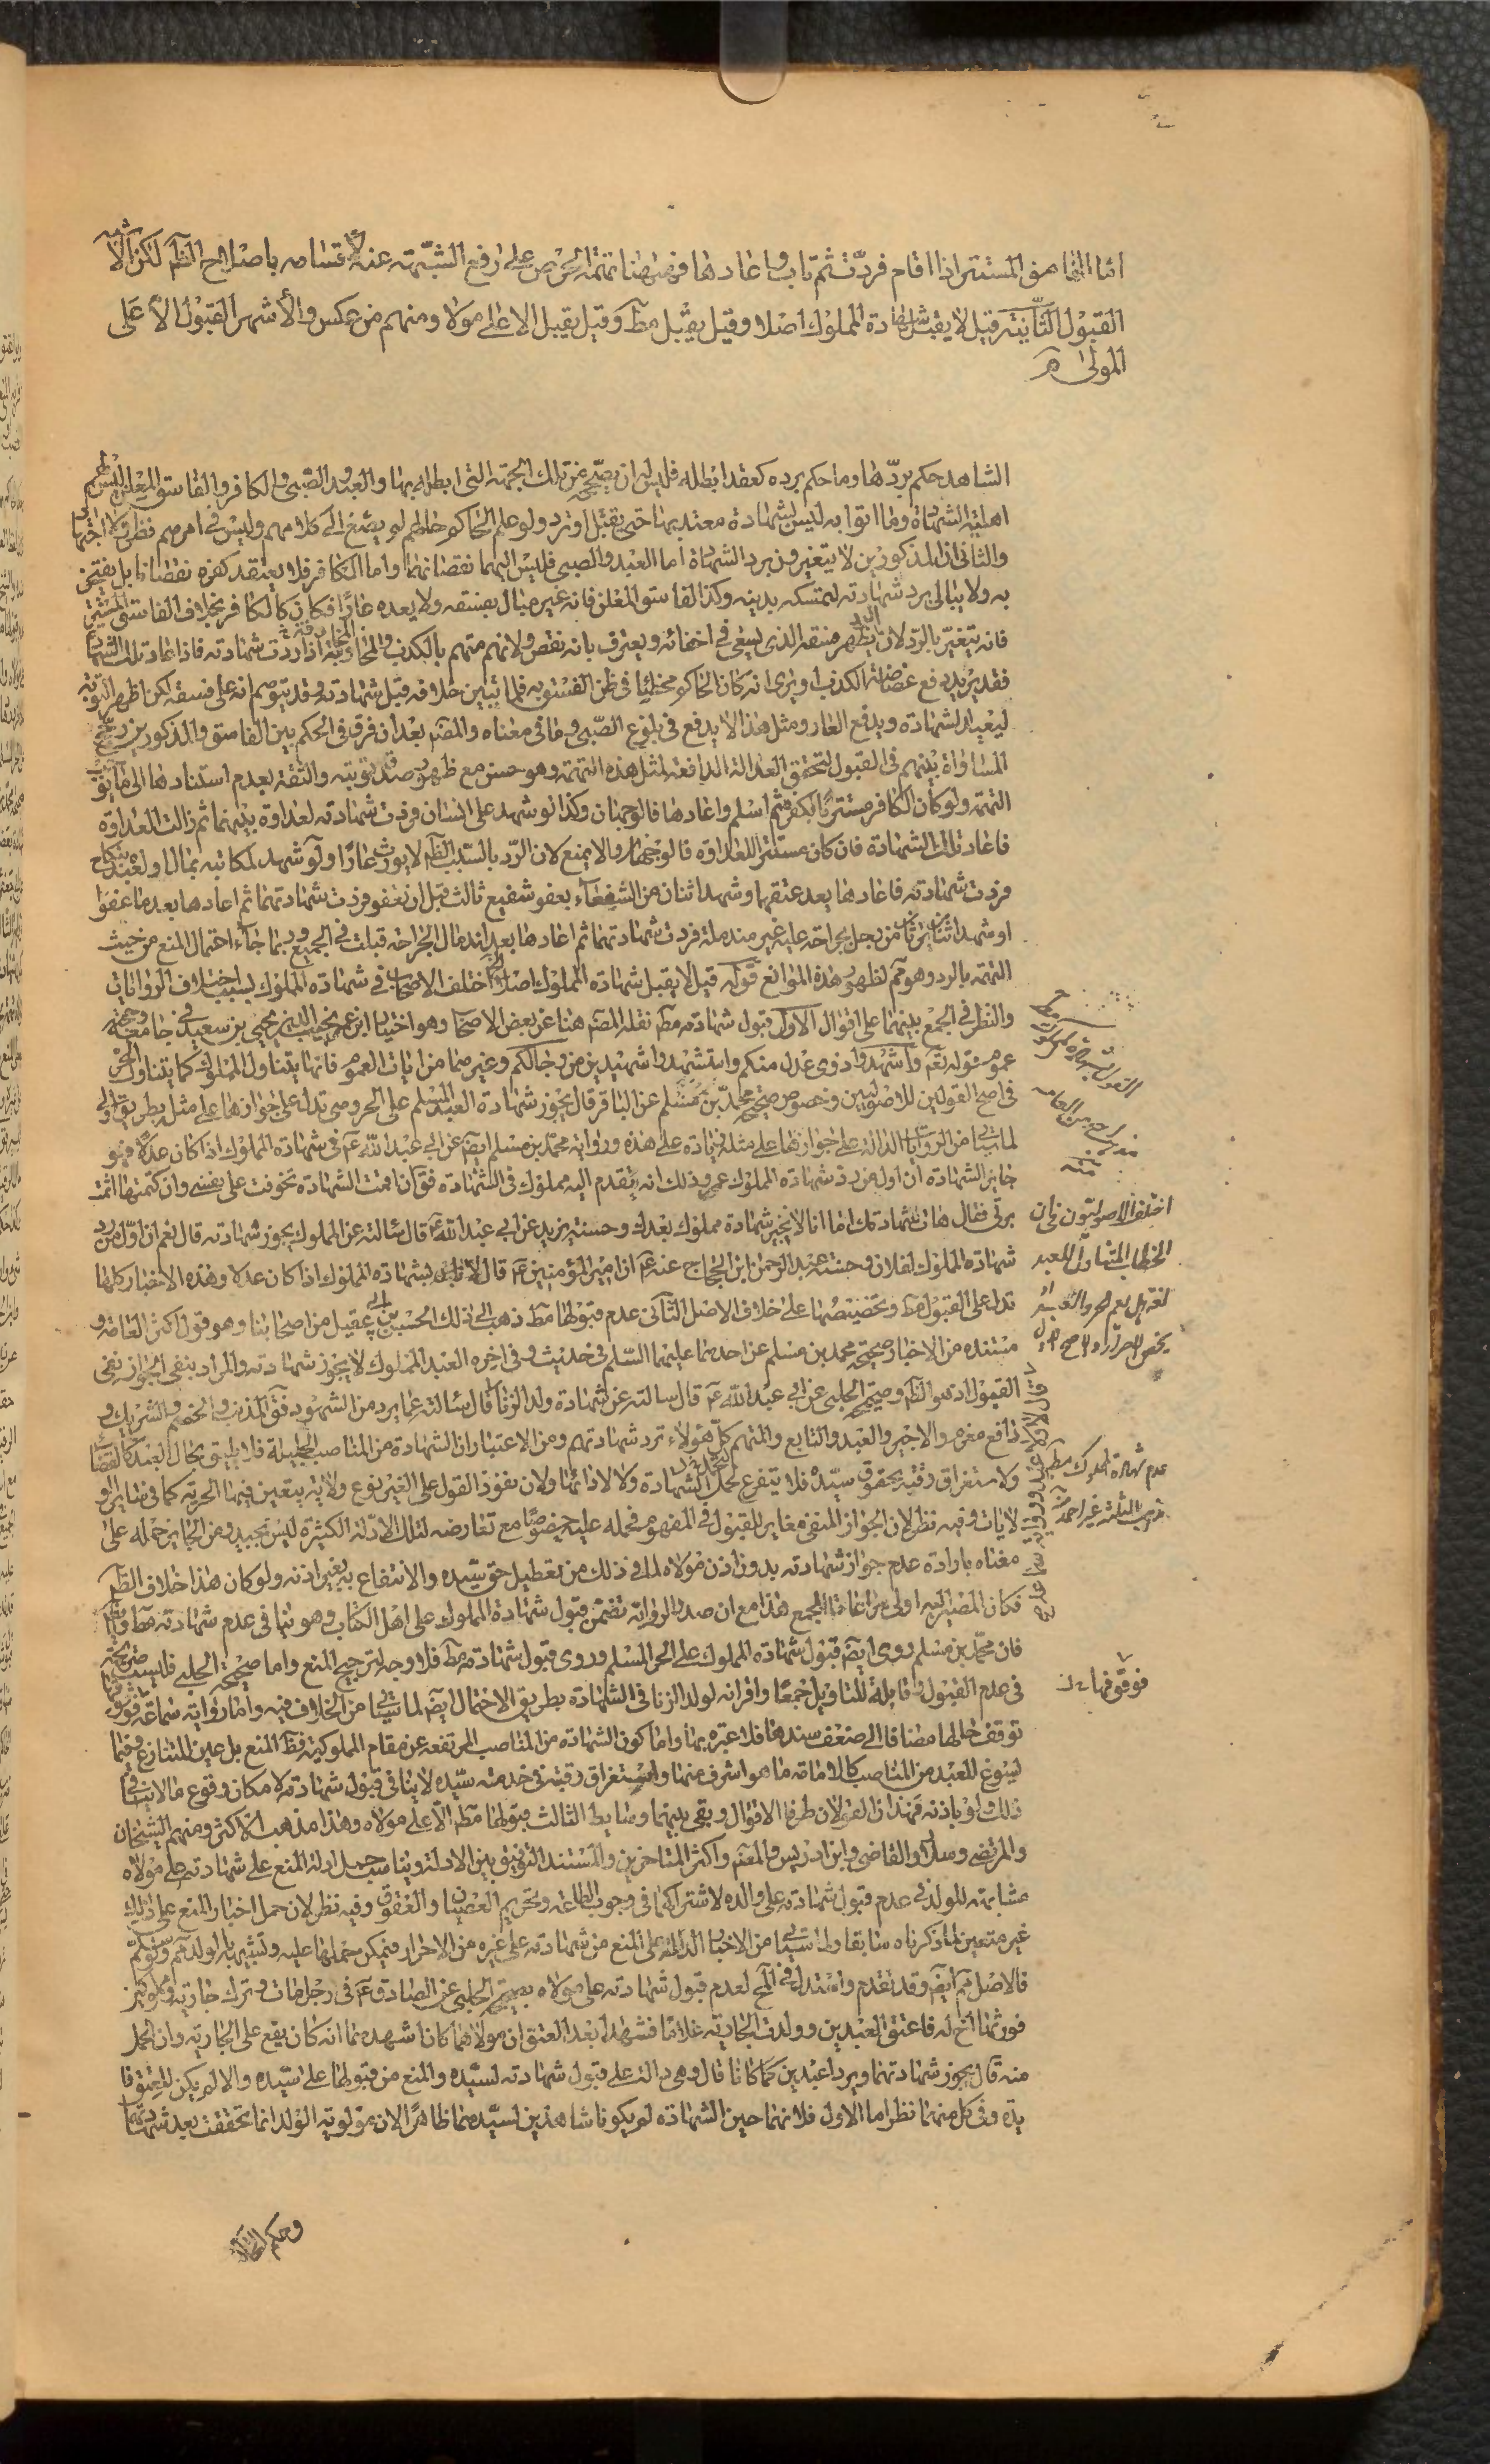 اما الفاسق المستتر اذا اقام فردّت ثم تاب واعادها فههنا تهمة الحرص على رفع الشبهة عنه لاهتمامه باصلاح الظاهر لكن الاشبه
القبول الثانية قيل لا يقبل شهادة المملوك اصلا وقيل يقبل مطلقا وقيل يقبل الا على مولاه ومنهم من عكس والأشهر القبول الا على
المولى
الشاهد حكم بردّها وما حكم برده كعقد ابطله فليس له ان يصححه من تلك الجهة التي ابطله بها والعبد والصبي والكافر والفاسق المعلن ليس لهم
اهلية الشهادة وما اتوا به ليس بشهادة معتد بها حتى يقبل او ترد ولو علم الحاكم حالهم لم يصغ الى كلامهم وليس في امرهم نظر ولا اجتهاد
والثاني ان المذكورين لا يتغيرون برد الشهادة اما العبد والصبي فليس اليهما نقصانهما واما الكافر فلا يعتقد كفره نقصانا بل يفتخر
به ولا يبالى برد شهادته لتمسكه بدينه وكذا الفاسق المعلن فانه غير مبال بفسقه ولا يعده عارًا فكان كالكافر بخلاف الفاسق المستتر
فانه يتغيّر بالرد لان الرد يظهر فسقه الذي يسعى في اخفائه ويعترف بانه نقص ولانهم متهم بالكذب والمجازفة اذا ردت شهادته فاذا اعاد تلك الشهادة
فقد يريد دفع غضاضة الكذب او يرى انه كان الحاكم مخطئا في ظن الفسق به فلما تبين خلافه قبل شهادته وقد يتوهم انه على فسقه لكن اظهر التوبة
ليعيد الشهادة ويدفع العار ومثل هذا لا يدفع في بلوغ الصبي وما في معناه والمصنف بعد ان فرق في الحكم بين الفاسق والمذكورين رجح
المساواة بينهم في القبول لتحقق العدالة الدافعة لمثل هذه التهمة وهو حسن مع ظهور صدق توبته والثقة بعدم استنادها الى ما يوجب
التهمة ولو كان الكافر مستترًا بكفره ثم اسلم واعادها فالوجهان وكذا لو شهد على انسان فردت شهادته لعداوة بينهما ثم زالت العداوة
فاعاد تلك الشهادة فان كان مستتر اللعداوة فالوجهان والا يمنع لان الرد بالسبب الظاهر لا يورث عارًا ولو شهد لمكاتبه بمال او لعبده بنكاح
فردت شهادته فاعادها بعد عتقهما وشهد اثنان من الشفعاء بعفو شفيع ثالث قبل ان يعفو فردت شهادتهما ثم اعادها بعد ما عفوا
او شهد اثنان يرثان من رجل بجراحة عليه غير مندملة فردت شهادتهما ثم اعادها بعد اندمال الجراحة قبلت في الجميع وربما جاء احتمال المنع من حيث
التهمة بالرد وهو مم لظهور هذه الموانع قوله قيل لا يقبل شهادة المملوك اصلا الخ اختلف الاصحاب في شهادة المملوك بسبب اختلاف الروايات
والنظر في الجمع بينهما على اقوال الاول قبول شهادته مطلقا نقله المصنف هنا عن بعض الاصحاب وهو اختيار ابن عمه نجيب الدين يحيى بن سعيد في جامعه وحجته
عموم قوله تعالى واشهدوا ذوى عدل منكم واستشهدوا شهيدين من رجالكم وغيرهما من ايات العموم فانها يتناول المملوك كما يتناول الحر
في اصح القولين للاصوليين وخصوص صحيحة محمد بن مسلم عن الباقر قال يجوز شهادة العبد المسلم على الحر وهي تدل على جوازها على مثله بطريق اولى
لما سيأتي من الروايات الدالة على جوازها على مثله زيادة على هذه ورواية محمد بن مسلم ايضا عن ابي عبد الله ع في شهادة المملوك اذا كان عدلا فهو
جايز الشهادة ان اول من رد شهادة المملوك عمر وذلك انه تقدم اليه مملوك في الشهادة فقال ان اقمت الشهادة تخوفت على نفسي وان كتمتها اثمت
بربي فقال هات شهادتك اما انا لا نجيز شهادة مملوك بعدك وحسنة بريد عن ابي عبد الله ع قال سألته عن المملوك يجوز شهادته قال نعم ان اول من رد
شهادة المملوك لفلان وحسنة عبد الرحمن ابن الحجاج عنه ع ان امير المؤمنين ع قال لا بأس بشهادة المملوك اذا كان عدلا وهذه الاخبار كلها
تدل على القبول مطلقا وتخصيصها على خلاف الاصل الثاني عدم قبولها مطلقا ذهب الى ذلك الحسن بن ابي عقيل من اصحابنا وهو قول اكثر العامة و
مستنده من الاخبار صحيحة محمد بن مسلم عن احدهما عليهما السلم في حديث وفي اخره العبد المملوك لا يجوز شهادته والمراد بنفي الجواز نفى
القبول اذ هو الظاهر وصحيحة الحلبي عن ابي عبد الله ع قال سالته عن شهادة ولد الزنا قال سألته عما يرد من الشهود فقال المذنب والخصم والشريك و
دافع مغرم والاجير والعبد والتابع والمتهم كل هؤلاء ترد شهادتهم ومن الاعتبار ان الشهادة من المناصب الجليلة فلا يليق بحال العبد كالقضاء
ولاستغراق وقته بحقوق سيّده فلا يتفرع لتحمل الشهادة ولا لادائها ولان نفوذ القول على الغير نوع ولاية يتعين فيها الحرية كما في ساير
الولايات وفيه نظر لان الجواز المنفى مغاير للقبول في المفهوم فحمله عليه خصوصًا مع تعارضه لتلك الادلة الكثيرة ليس بجيد ومن الجايز حمله على
معناه بارادة عدم جواز شهادته بدون اذن مولاه لما في ذلك من تعطيل حق سيده والانتفاع به بغير اذنه ولو كان هذا خلاف الظاهر
فكان المصير اليه اولى مراعاة للجمع هذا مع ان صدر الرواية تضمن قبول شهادة المملوك على اهل الكتاب وهو ينافي عدم شهادته مطلقا
فان محمد بن مسلم روى ايضا قبول شهادة المملوك على الحر المسلم وروى قبول شهادته مطلقا فلا وجه لترجيح المنع واما صحيحة الحلبي فليست صريحة
في عدم القبول وقابلة للتاويل جمعًا واقرانه لولد الزنا في الشهادة بطريق الاحتمال ايضا لما سيأتي من الخلاف فيه واما رواية سماعة فوقوفها
توقف حالها مضافا الى ضعف سندها فلا عبرة بها واما كون الشهادة من المناصب المرتفعة عن مقام المملوكية فظاهر المنع بل عين المتنازع وقيما
ليسوغ للعبد من المناصب كالامامة ما هو اشرف منها واستغراق وقته في خدمة سيده لا ينافى قبول شهادته لامكان وقوع ما لا ينافي
ذلك ولو باذنه فهذان القولان طرفا الاقوال وبقى بينهما وسايط الثالث قبولها مطلقا الا على مولاه وهذا مذهب الاكثر ومنهم الشيخان
والمرتضى وسلار والقاضى وابن ادريس والمصنف واكثر المتاخرين والمستند التوفيق بين الادلة ويناسب حمل ادلة المنع على شهادته على مولاه
مشابهته للولد في عدم قبول شهادته على والده لاشتراكهما في وجوب الطاعة وتحريم العصيان والعقوق وفيه نظر لان حمل اخبار المنع على ذلك
غير متعين لما ذكرناه سابقا ولما سيأتي من الاخبار الدالة على المنع من شهادته على غيره من الاحرار فيمكن حملها عليه وتشبيهه بالولد مم
فالاصل مم ايضا وقد تقدم واستدل في المخ لعدم قبول شهادته على مولاه بصحيحة الحلبي عن الصادق ع في رجل مات وترك جارية ومملوكين
فورثهما اخ له فاعتق العبدين وولدت الجارية غلامًا فشهدا بعد العتق ان مولاهما كان اشهدهما انه كان يقع على الجارية وان الحمل
منه قال يجوز شهادتهما ويردا عبدين كما كانا قال وهي دالة على قبول شهادته لسيده والمنع من قبولها على سيده والا لم يكن للعتق فا
يدة وفي كل منهما نظر اما الاول فلانهما حين الشهادة لم يكونا شاهدين لسيدهما ظاهرًا لان مولوية الولد انما تحققت بعد شهادتهما
وحكم
اختلف الاصوليون في ان
الخطاب المتناول للعبد
لغة هل يعم الحر والعبد
يخص الاحرار والاصح
عدم شهادة المملوك مطلقا
مذهب الثلثة غير احمد
فوقوفها